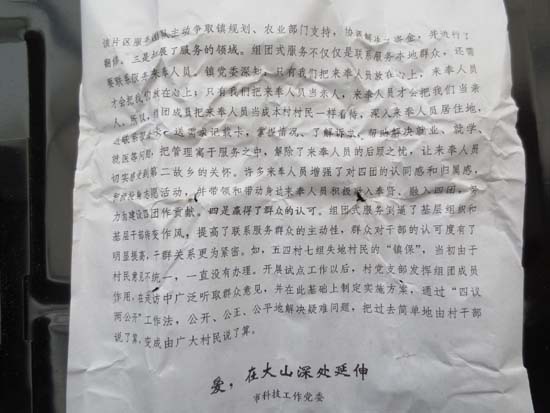 该片区服务团队主动争取镇规划、农业部门支持,协调解决了资金,先进行了
翻修。三是拓展了服务的领域。组团式服务不仅仅是联系服务本地群众,还需
要联系服务来奉人员。镇党委深知,只有我们把来奉人员放在心上,来奉人员
才会把我们放在心上;只有我们把来奉人员当亲人,来奉人员才会把我们当亲
人。所以,团成员把来奉人员当成本村村民一样看待,深入来奉人员居住地,
送需求记载卡,掌握情况、了解诉求,帮助解决就业、就学、
就医等问题,把管理寓于服务之中,解除了来奉人员的后顾之忧,让来奉人员
切实感受到第二故乡的关怀。许多来奉人员增强了对四团的认同感和归属感,
志愿活动,并带领和带动身边来奉人员积极融入奉贤、融入四团,努
力为建设四团作贡献。四是赢得了群众的认可。组团式服务倒逼了基层组织和
基层干部转变作风,提高了联系服务群众的主动性,群众对干部的认可度有了
明显提高,干群关系更为紧密。如,五四村七组失地村民的“镇保”,当初由于
村民意见不统一,一直没有办理。开展试点工作以后,村党支部发挥组团成员
作用,在走访中广泛听取群众意见,并在此基础上制定实施方案,通过“四议
两公开”工作法,公开、公正、公平地解决疑难问题,把过去简单地由村干部
说了算,变成由广大村民说了算。
爱,在大山深处延伸
市科技工作党委